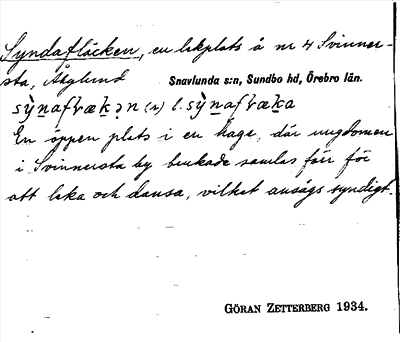 Syndafläcken, en lekplats å nr 4 Svinner-
sta, Åtglund Snavlunda s:n, Sundbo hd, Örebro län.
l.
En öppen plats i en hage, där ungdomen
i Svinnersta by brukade samlas förr för
att leka och dansa, vilket ansågs syndigt.
GÖRAN ZETTERBERG 1934.